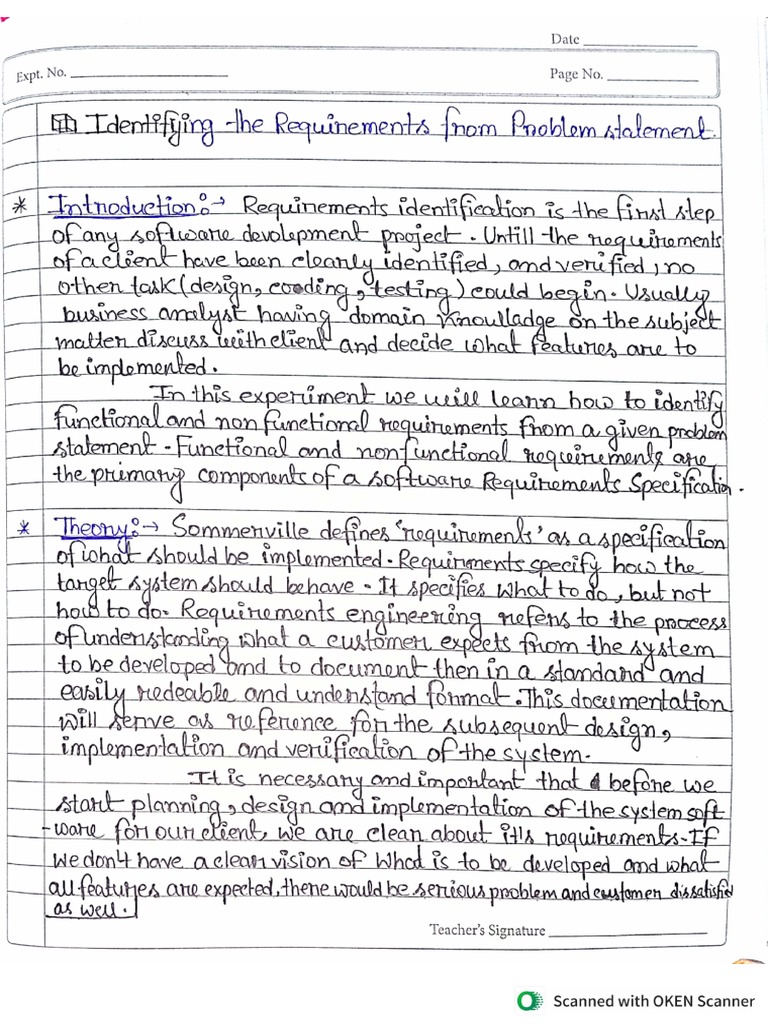 Date
Expt. No.
Page No.
Identifying the Requirements from Problem statement.
* Introduction:→ Requirements identification is the first step
of any software devolepment project. Untill the requirements
of a client have been clearly identified, and verified, no
other task (design, cooding, testing) could begin. Usually
business analyst having domain knowlladge on the subject
matter discuss with client and decide what features are to
be implemented.
In this experiment we will learn how to identify
functional and non functional requirements from a given problem
statement. Functional and nonfunctional requirements are
the primary components of a software Requirements Specification.
* Theory:→ Sommerville defines 'requirements' as a specification
of what should be implemented. Requirments specify how the
target system should behave. It specifies what to do, but not
how to do. Requirements engineering refers to the process
of understanding what a customer expects from the system
to be developed and to document then in a standard and
easily redeable and understand format. This documentation
will serve as reference for the subsequent design,
implementation and verification of the system.
It is necessary and important that before we
start planning, design and implementation of the system soft
-ware for our client, we are clear about it's requirements. If
we don't have a clear vision of what is to be developed and what
all features are expected, there would be serious problem and customer dissatisfied
as well.
Teacher's Signature
Scanned with OKEN Scanner